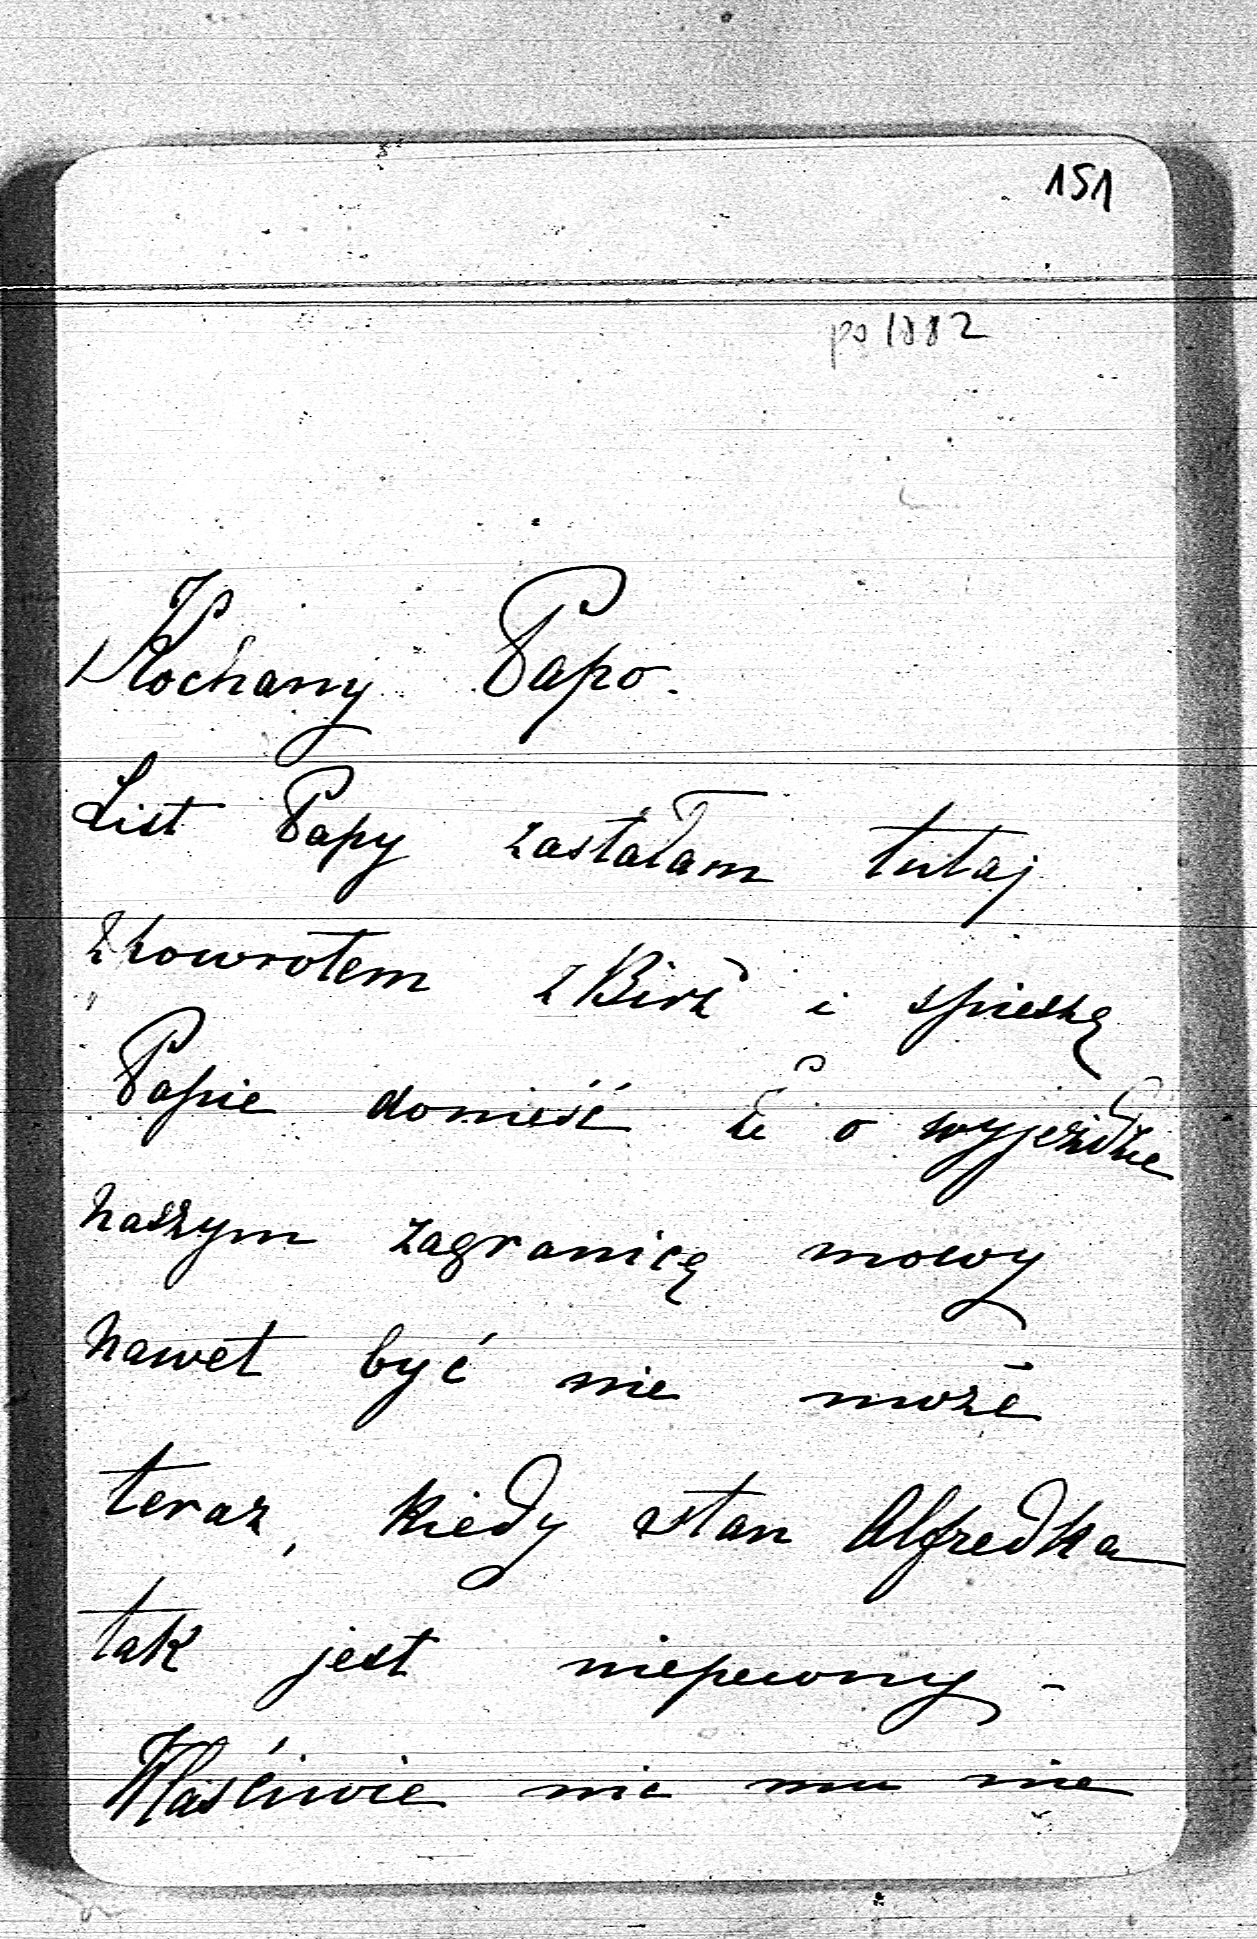 151
po 1882
Kochany Papo.
List Papy zastałam tutaj
z powrotem z Birż i spieszę
Papie donieść że o wyjeździe
naszym zagranicę mowy
nawet być nie może
teraz, kiedy stan Alfredka
tak jest niepewny -
Właściwie nic mu nie